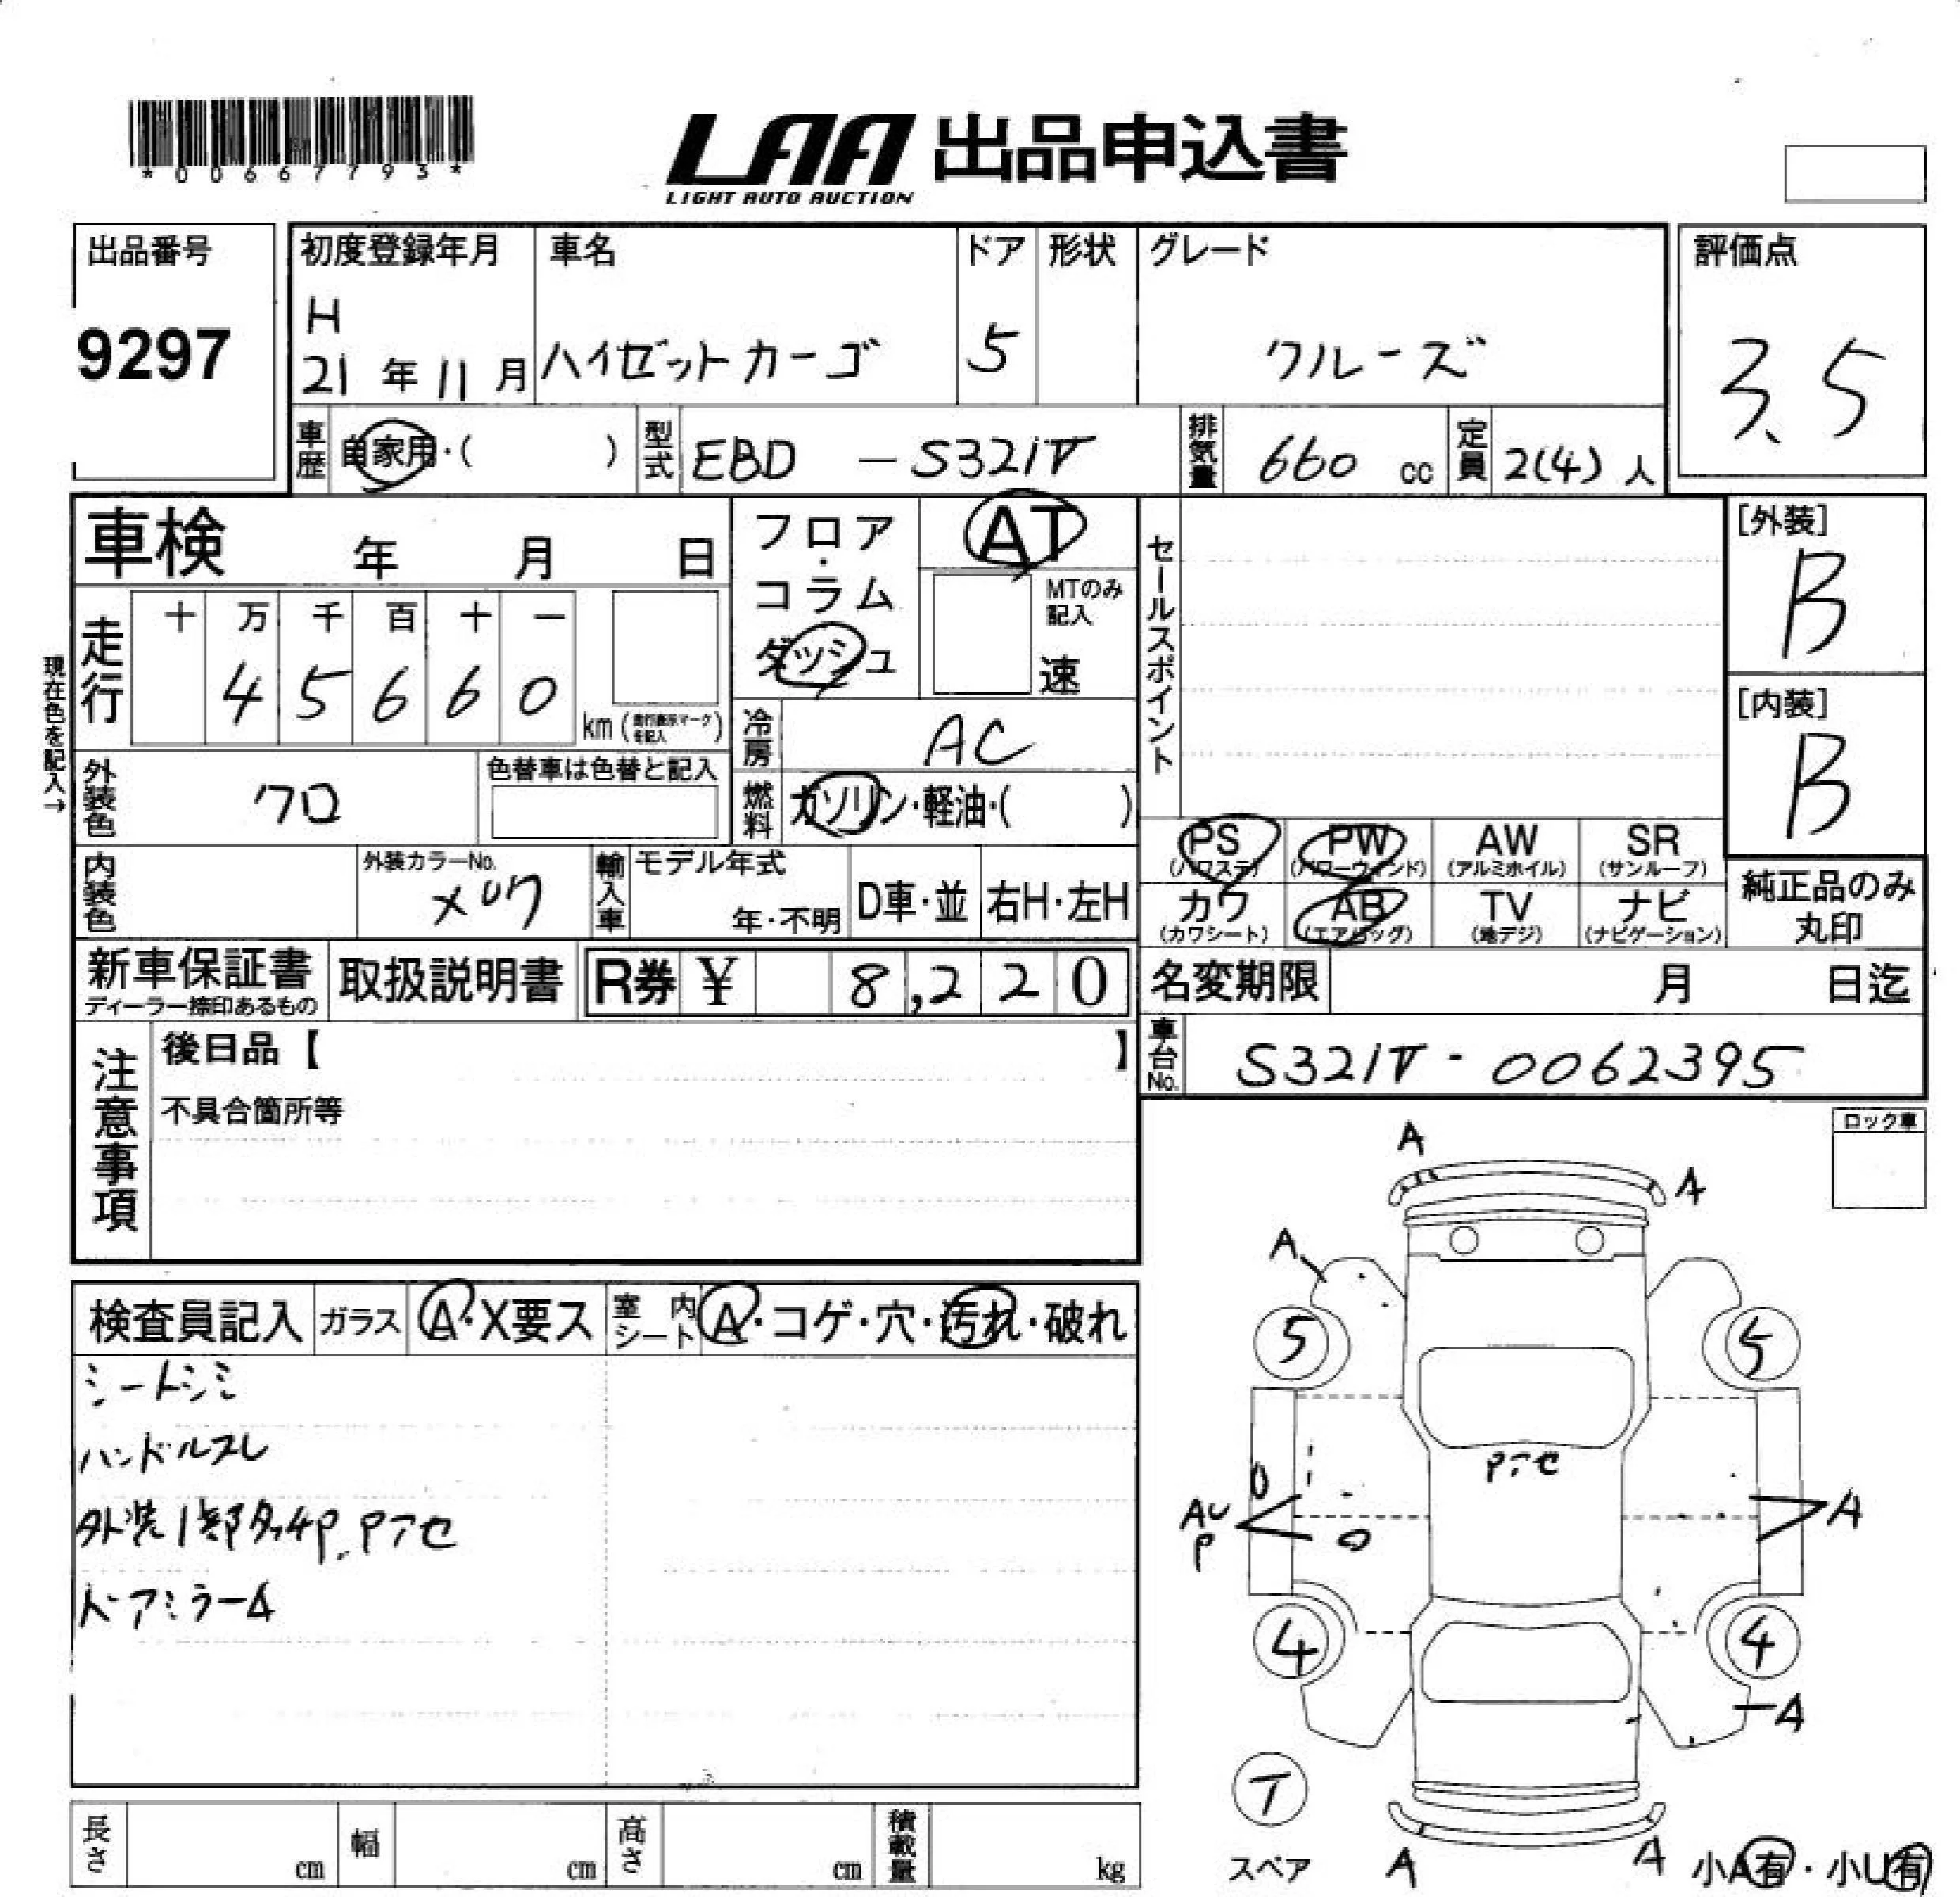 *00667793*
LAA 出品申込書
LIGHT AUTO AUCTION
出品番号
9297
初度登録年月
H
21 年 11 月
車名
ハイゼットカーゴ
ドア
5
形状
グレード
クルーズ
評価点
3.5
車歴
自家用・( )
型式
EBD - S321V
排気量
660 cc
定員
2(4) 人
車検 年 月 日
現在色を記入→
走行
十 万 千 百 十 一
4 5 6 6 0
km(走行表示マークを記入)
外装色
クロ
色替車は色替と記入
内装色
外装カラーNo.
フロア・コラム
ダッシュ
AT
MTのみ記入
速
冷房
AC
燃料
ガソリン・軽油・( )
輸入車
モデル年式
年・不明
D車・並
右H・左H
セールスポイント
[外装]
B
[内装]
B
PS
(パワステ)
PW
(パワーウィンド)
AW
(アルミホイル)
SR
(サンルーフ)
カワ
(カワシート)
AB
(エアバッグ)
TV
(地デジ)
ナビ
(ナビゲーション)
純正品のみ
丸印
新車保証書
ディーラー捺印あるもの
取扱説明書
R券 ¥ 8,220
名変期限 月 日迄
車台No.
S321V - 0062395
注意事項
後日品【 】
不具合箇所等
ロック車
検査員記入
ガラス
A・X要ス
室内シート
A・コゲ・穴・汚れ・破れ
シートシミ
ハンドルスレ
外装1部タッチP. Pアセ
ドアミラーA
A
A
A
5
5
Pアセ
AU
P
A
4
4
A
T
スペア
A
A
小A有・小U有
長さ cm
幅 cm
高さ cm
積載量 kg